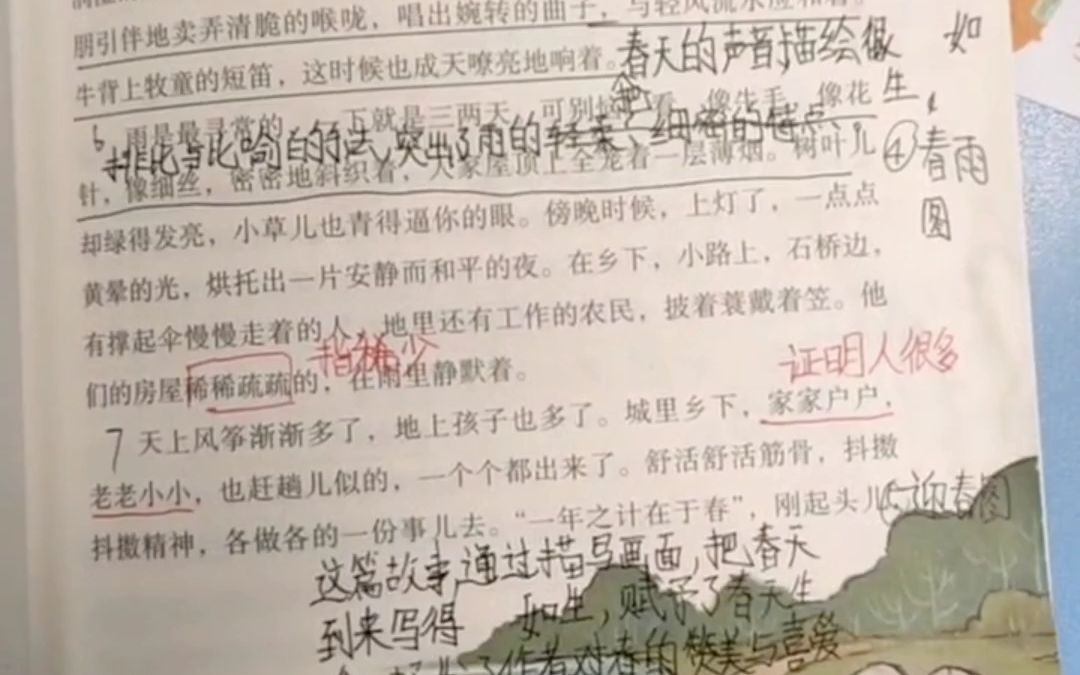 朋引伴地卖弄清脆的喉咙，唱出婉转的曲子，与轻风流水应和着。
牛背上牧童的短笛，这时候也成天嘹亮地响着。
春天的声音描绘得
如
生
6 雨是最寻常的，一下就是三两天。可别恼。看，像牛毛，像花
排比与比喻的 突出了雨的轻柔、细密的特点
针，像细丝，密密地斜织着，人家屋顶上全笼着一层薄烟。树叶儿
④春雨
图
却绿得发亮，小草儿也青得逼你的眼。傍晚时候，上灯了，一点点
黄晕的光，烘托出一片安静而和平的夜。在乡下，小路上，石桥边，
有撑起伞慢慢走着的人，地里还有工作的农民，披着蓑戴着笠。他
指稀少
证明人很多
们的房屋稀稀疏疏的，在雨里静默着。
7 天上风筝渐渐多了，地上孩子也多了。城里乡下，家家户户，
老老小小，也赶趟儿似的，一个个都出来了。舒活舒活筋骨，抖擞
抖擞精神，各做各的一份事儿去。“一年之计在于春”，刚起头儿
迎春图
这篇故事，通过描写画面，把春天
到来写得 如生，赋予了春天生
作者对春的赞美与喜爱